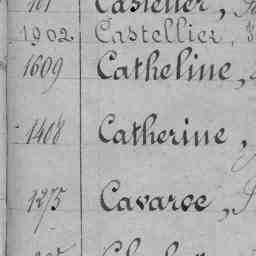 Castellier,
1902 Castellier,
1609 Catheline,
1408 Catherine,
1275 Cavaroe,